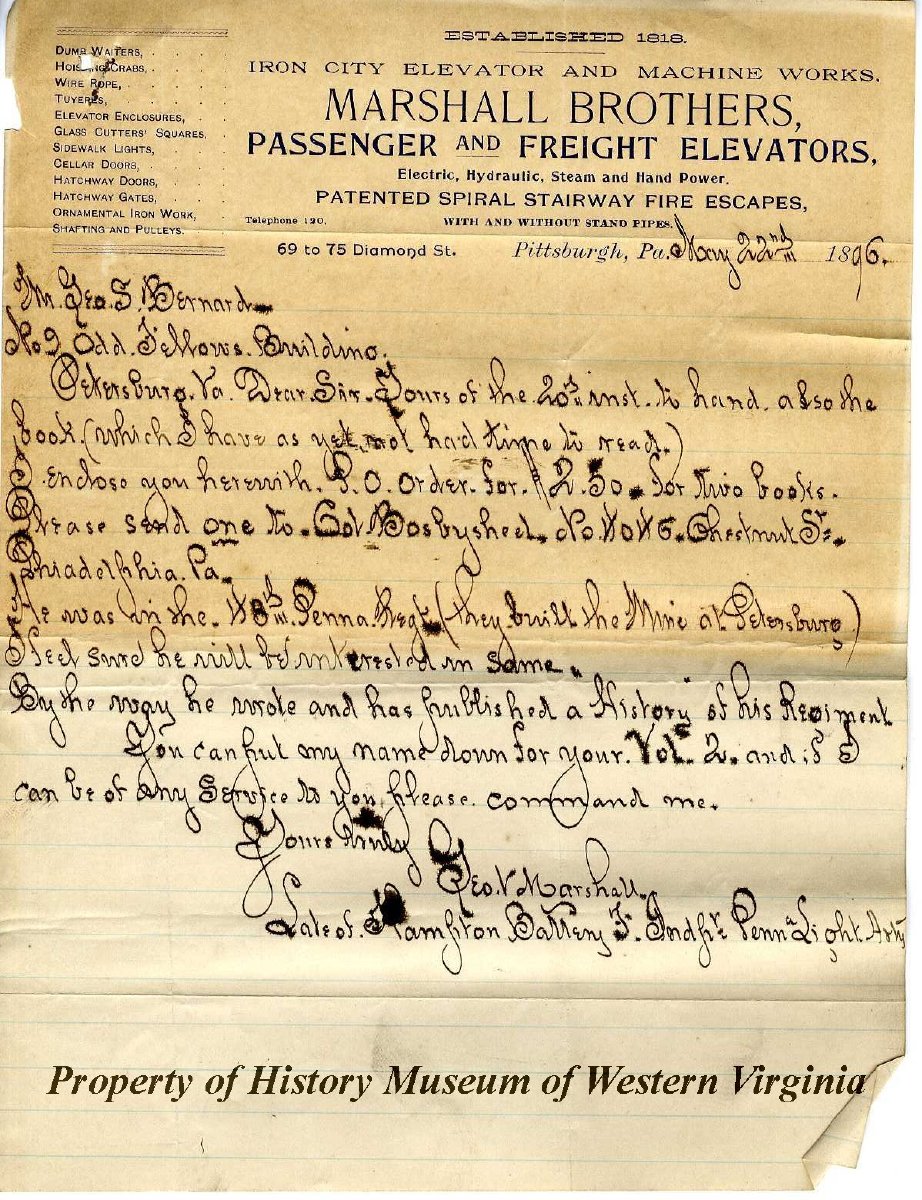 ESTABLISHED 1818.
DUMB WAITERS,
HOISTING CRABS,
WIRE ROPE,
TUYERES,
ELEVATOR ENCLOSURES,
GLASS CUTTERS' SQUARES,
SIDEWALK LIGHTS,
CELLAR DOORS,
HATCHWAY DOORS,
HATCHWAY GATES,
ORNAMENTAL IRON WORK,
SHAFTING AND PULLEYS.
IRON CITY ELEVATOR AND MACHINE WORKS.
MARSHALL BROTHERS,
PASSENGER AND FREIGHT ELEVATORS,
Electric, Hydraulic, Steam and Hand Power.
PATENTED SPIRAL STAIRWAY FIRE ESCAPES,
Telephone 120. WITH AND WITHOUT STAND PIPES.
69 to 75 Diamond St. Pittsburgh, Pa. May 22nd 1896.
Mr. Geo. S. Bernard
No 9 Odd. Fellows. Building.
Petersburg. Va. Dear. Sir. Yours of the 20th inst. to hand. also the
book. (which I have as yet not had time to read.)
I enclose you herewith. P. O. Order. for. $2.50. for two books.
Please send one to. Col Bosbyshell, No. 4046. Chestnut St.
Phiadelphia. Pa.
He was in the. 48th. Penna. Regt (they built the Mine at Petersburg)
I feel sure he will be interested in same.
By the way he wrote and has published a History of his Regiment
You can put my name down for your. Vol. 2. and if I
can be of any Service to you please. command me.
Yours truly
Geo. V Marshall.
Late of. Hampton Battery F. Indpt. Penna Light Arty
Property of History Museum of Western Virginia